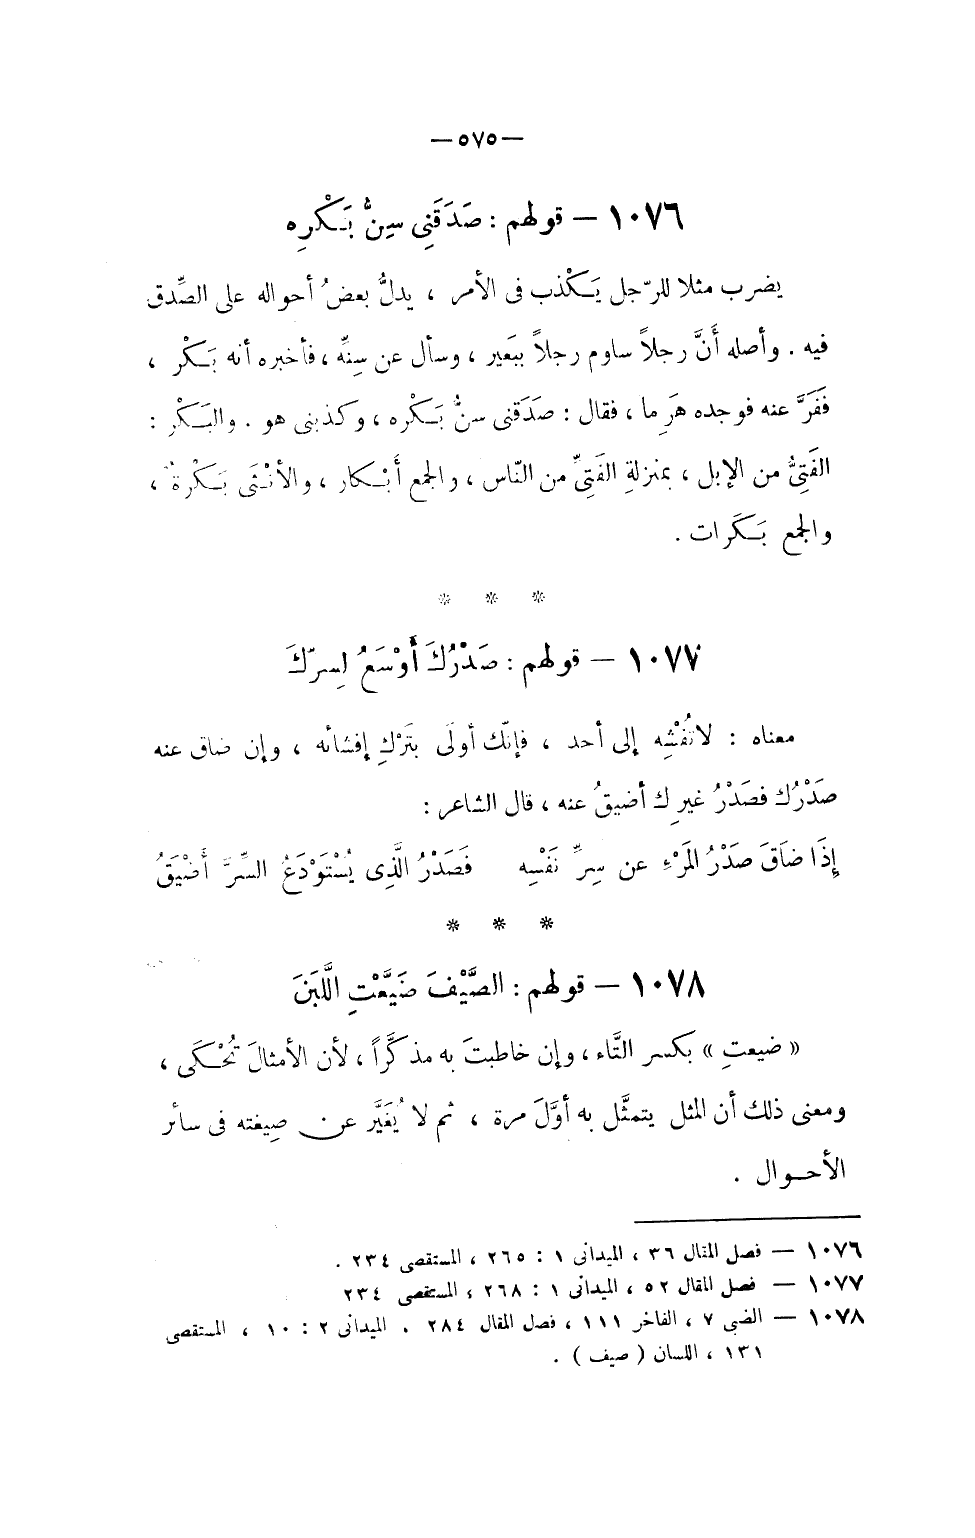 —٥٧٥—
١٠٧٦ — قولهم : صَدَقَنِى سِنُّ بَكْرِه
يضرب مثلا للرّجل يَكْذب فى الأمر ، يدلُّ بعضُ أحواله على الصِّدق
فيه . وأصله أَنَّ رجلاً ساوم رجلاً ببَعير ، وسأل عن سِنِّه ، فأخبره أنه بَكْر ،
فَفَرَّ عنه فوجده هَرِما ، فقال : صَدَقنى سنُّ بَكْره ، وكذبنى هو . والبَكْر :
الفَتِىُّ من الإبل ، بمنزلةِ الفَتِىِّ من النّاس ، والجمع أَبْكار ، والأنْثَى بَكْرة ،
والجمع بَكَرات .
* * *
١٠٧٧ — قولهم : صَدْرُكَ أَوْسَعُ لِسِرّكَ
معناه : لا تُفْشِه إلى أحد ، فإنّك أولَى بتَرْكِ إفشائه ، وإن ضاق عنه
صَدْرُك فصَدْرُ غيرِك أضيقُ عنه ، قال الشاعر :
إِذَا ضَاقَ صَدْرُ المَرْءِ عن سِرِّ نَفْسِه فَصَدْرُ الَّذِى يُسْتَوْدَعُ السِّرَّ أَضْيَقُ
* * *
١٠٧٨ — قولهم : الصَّيْفَ ضَيَّعْتِ اللَّبَنَ
« ضيعتِ » بكسر التَّاء ، وإن خاطبتَ به مذكَّراً ، لأن الأمثالَ تُحْكَى ،
ومعنى ذلك أن المثل يتمثَّل به أوَّلَ مرة ، ثم لا يُغَيَّر عن صِيغته فى سائر
الأحوال .
١٠٧٦ — فصل المقال ٣٦ ، الميدانى ١ : ٢٦٥ ، المستقصى ٢٣٤ .
١٠٧٧ — فصل المقال ٥٢ ، الميدانى ١ : ٢٦٨ ، المستقصى ٢٣٤
١٠٧٨ — الضبى ٧ ، الفاخر ١١١ ، فصل المقال ٢٨٤ . الميدانى ٢ : ١٠ ، المستقصى
١٣١ ، اللسان ( صيف ) .